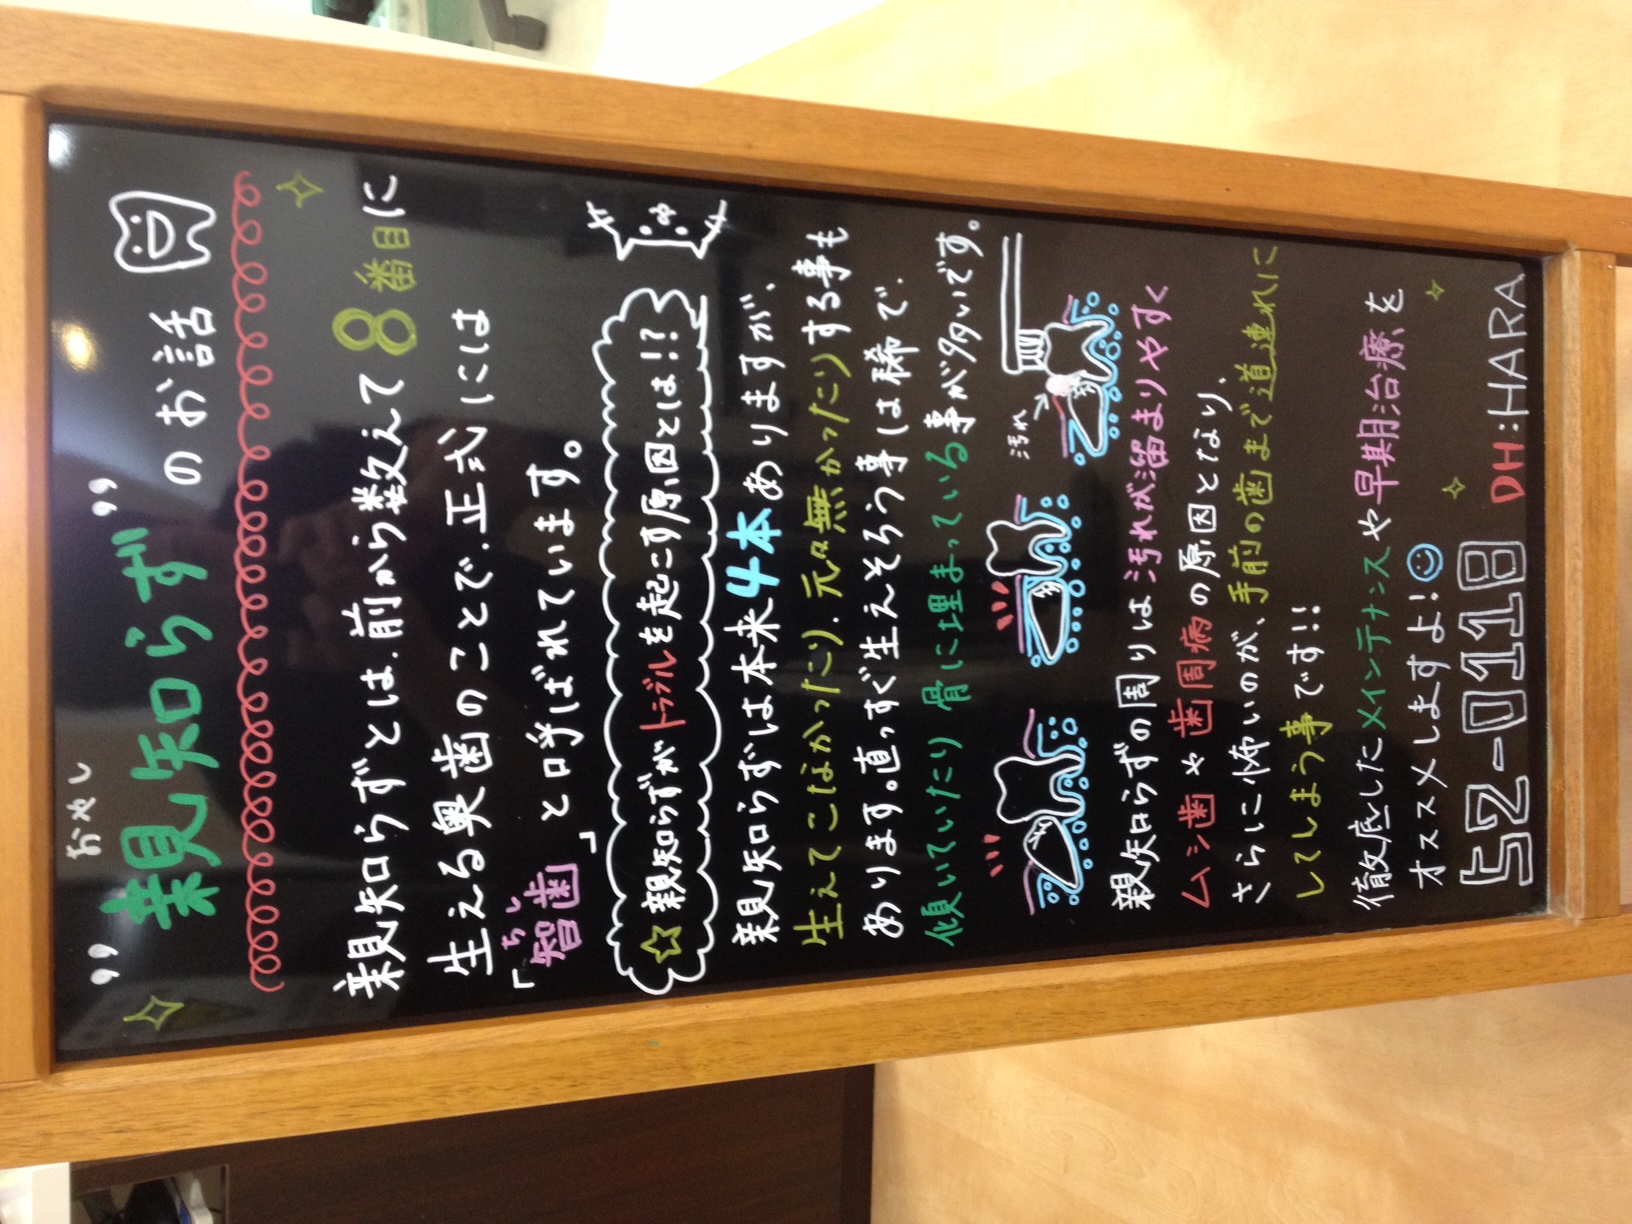 おやし
"親知らず"のお話
親知らずとは、前から数えて8番目に
生える奥歯のことで、正式には
ちし
「智歯」と呼ばれています。
☆親知らずがトラブルを起こす原因とは!?
親知らずは本来4本ありますが、
生えてこなかったり、元々無かったりする事も
あります。直っすぐ生えそろう事は稀で、
傾いていたり骨に埋まっている事が多いです。
汚れ
親知らずの周りは汚れが溜まりやすく
ムシ歯や歯周病の原因となり、
さらに怖いのが、手前の歯まで道連れに
してしまう事です!!
徹底したメインテナンスや早期治療を
オススメしますよ!
52-0118 DH:HARA